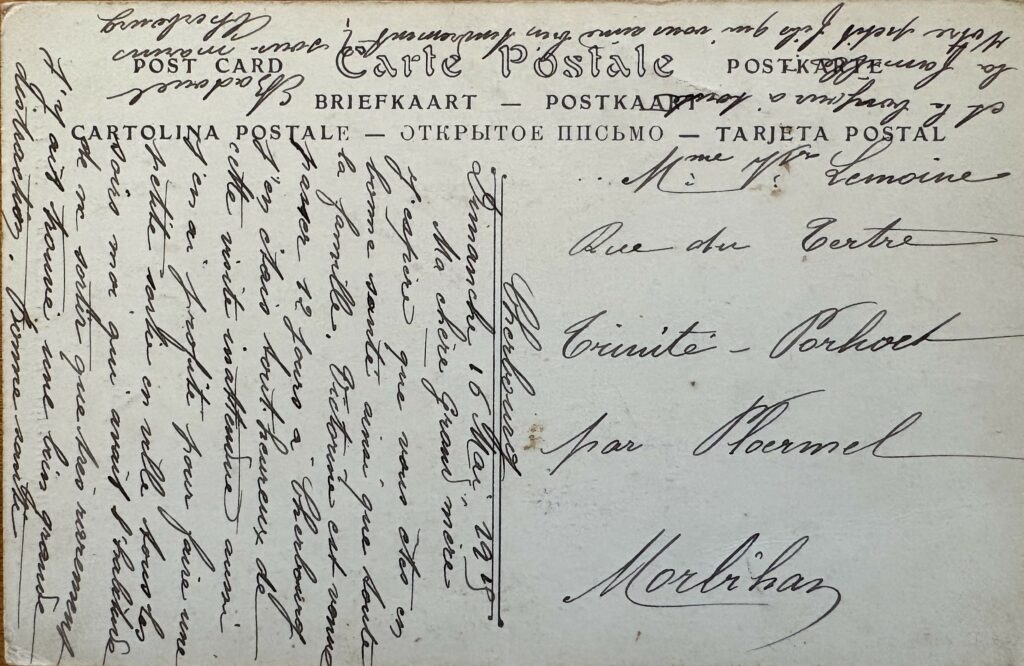 POST CARD Carte Postale POSTKARTE
BRIEFKAART — POSTKAART
CARTOLINA POSTALE — ОТКРЫТОЕ ПИСЬМО — TARJETA POSTAL
Mme Vve Lemoine
Rue du Tertre
Trinité - Porhoet
par Ploermel
Morbihan
Cherbourg
Dimanche 16 Mai 1915
Ma chère grand mère
J'espère que vous êtes en
bonne santé ainsi que toute
la famille. Victorine est venue
passer 12 jours à Cherbourg
J'en étais tout heureux de
cette visite inattendue aussi
j'en ai profité pour faire une
petite sortie en ville tous les
soirs moi qui avait l'habitude
de ne sortir que très rarement
J'y ait trouvé une bien grande
distraction. Bonne santé
et le bonjour à toute
la famille
Votre petit fils qui vous aime bien tendrement
Badouel
sous-marins
Cherbourg